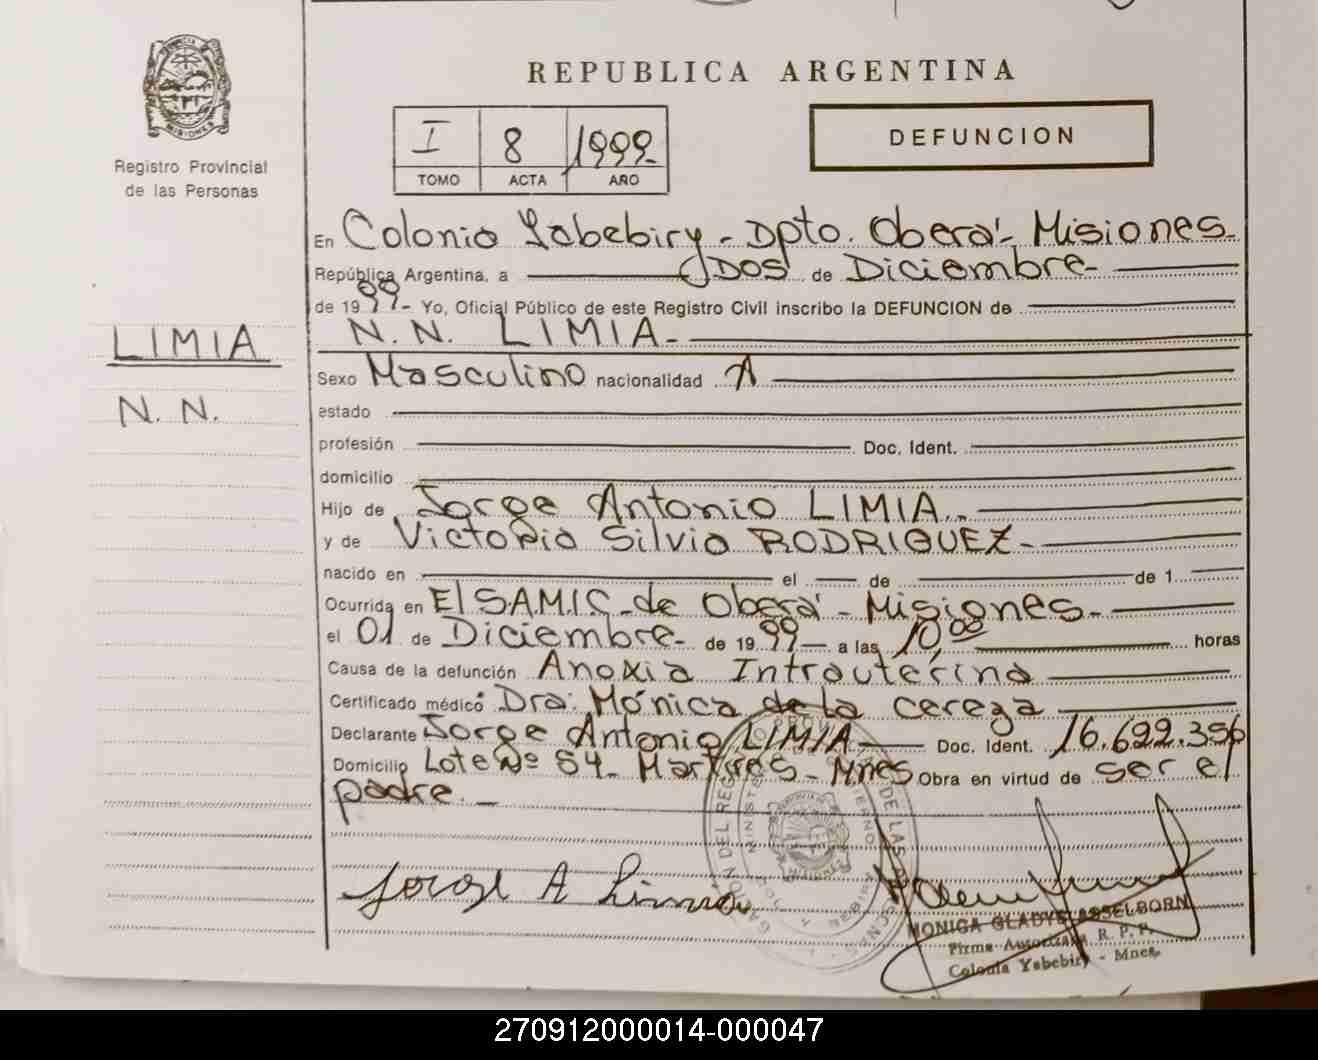 REPUBLICA ARGENTINA
PROVINCIA DE
MISIONES
Registro Provincial
de las Personas
I 8 1999
TOMO ACTA AÑO
DEFUNCION
En Colonia Yabebiry - Dpto. Oberá - Misiones
República Argentina, a Dos de Diciembre
de 1999 - Yo, Oficial Público de este Registro Civil inscribo la DEFUNCION de
N. N. LIMIA
LIMIA
N. N.
Sexo Masculino nacionalidad A
estado
profesión Doc. Ident.
domicilio
Hijo de Jorge Antonio LIMIA
y de Victoria Silvia RODRIGUEZ
nacido en el de de 1
Ocurrida en El S.A.M.I.C. de Oberá - Misiones
el 01 de Diciembre de 1999 a las 10,00 horas
Causa de la defunción Anoxia Intrautérina
Certificado médico Dra: Mónica de la Cereza
Declarante Jorge Antonio LIMIA Doc. Ident. 16.622.356
Domicilio Lote Nº 54 - Martires - Mnes Obra en virtud de ser el
padre.
Jorge A Limia
MONICA GLADYS ASSELBORN
Firma Autorizada R. P. P.
Colonia Yabebiry - Mnes.
270912000014-000047